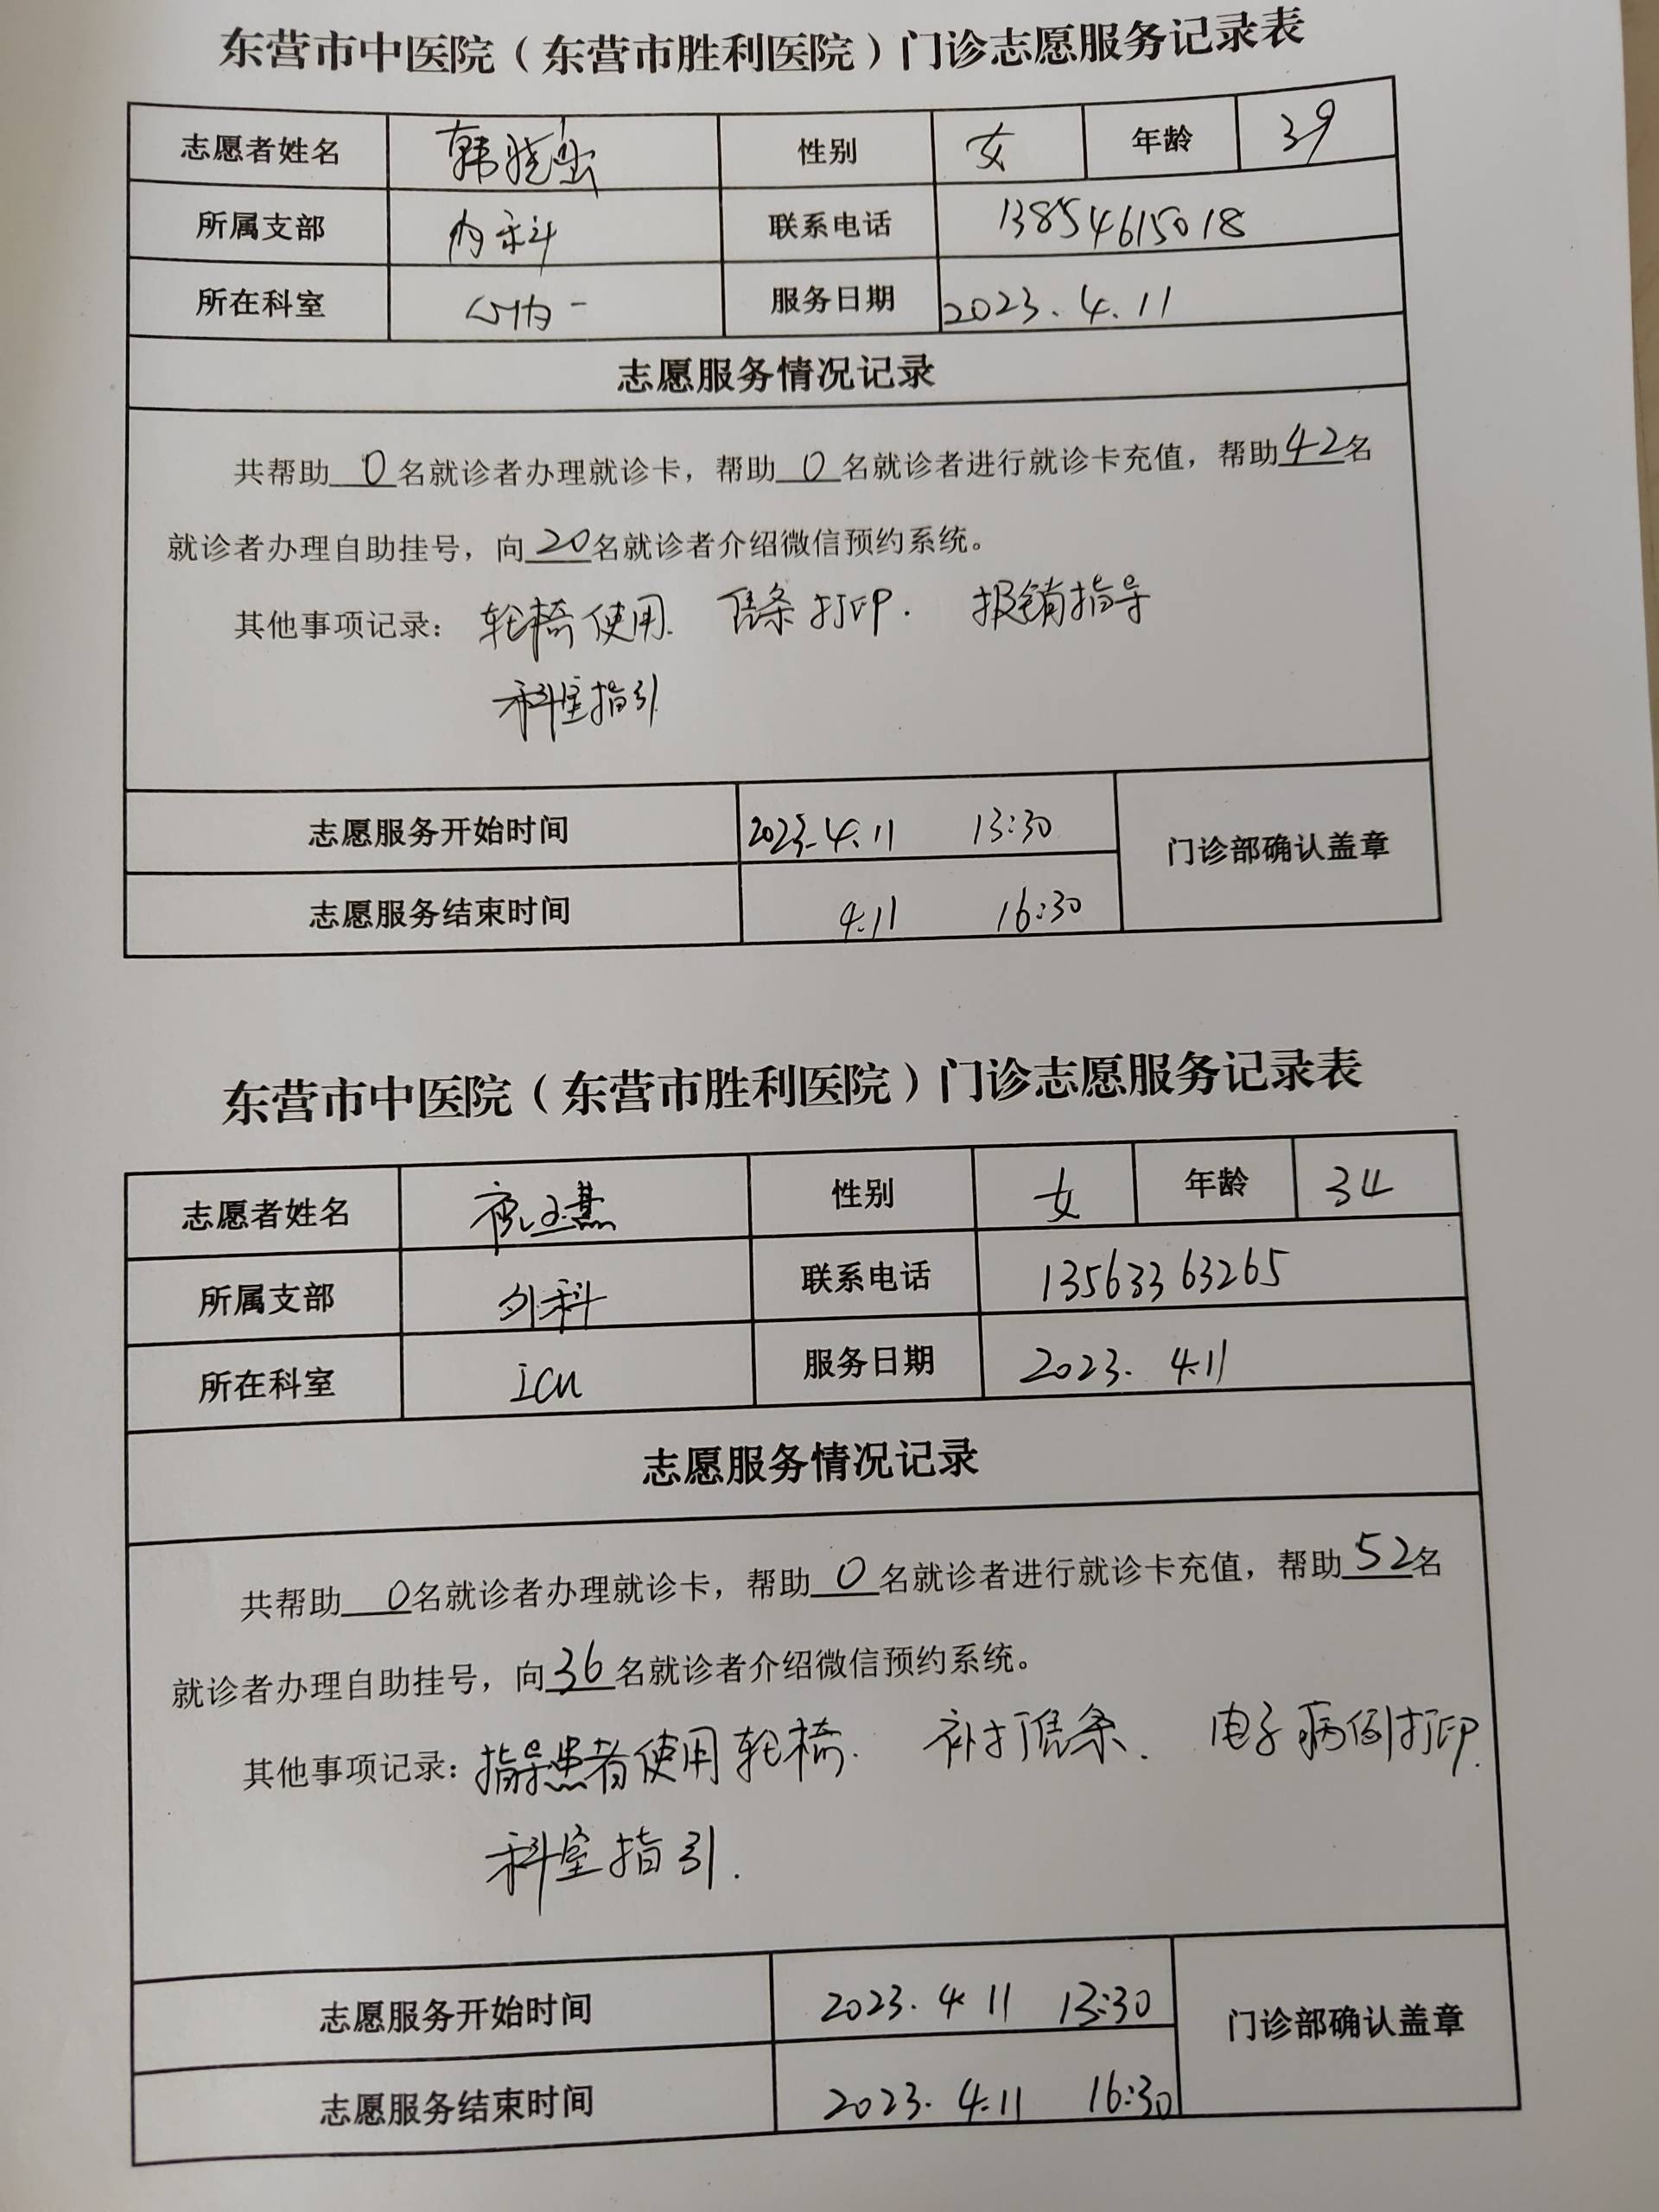 东营市中医院（东营市胜利医院）门诊志愿服务记录表
志愿者姓名 韩晓 性别 女 年龄 39
所属支部 内科 联系电话 13854615018
所在科室 心内一 服务日期 2023.4.11
志愿服务情况记录
共帮助0名就诊者办理就诊卡，帮助0名就诊者进行就诊卡充值，帮助42名
就诊者办理自助挂号，向20名就诊者介绍微信预约系统。
其他事项记录：轮椅使用. 信条打印. 报销指导
科室指引
志愿服务开始时间 2023.4.11 13:30 门诊部确认盖章
志愿服务结束时间 4.11 16:30
东营市中医院（东营市胜利医院）门诊志愿服务记录表
志愿者姓名 性别 女 年龄 34
所属支部 外科 联系电话 13563363265
所在科室 icu 服务日期 2023. 4.11
志愿服务情况记录
共帮助0名就诊者办理就诊卡，帮助0名就诊者进行就诊卡充值，帮助52名
就诊者办理自助挂号，向36名就诊者介绍微信预约系统。
其他事项记录：指导患者使用轮椅. 补打信条. 电子病例打印.
科室指引.
志愿服务开始时间 2023.4.11 13:30 门诊部确认盖章
志愿服务结束时间 2023.4.11 16:30